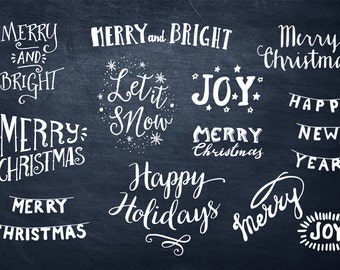 MERRY
AND
BRIGHT
MERRY and BRIGHT
Merry
Christmas
Let it
Snow
JOY
HAPPY
NEW
YEAR
MERRY
CHRISTMAS
MERRY
Christmas
Happy
Holidays
MERRY
CHRISTMAS
Merry
JOY